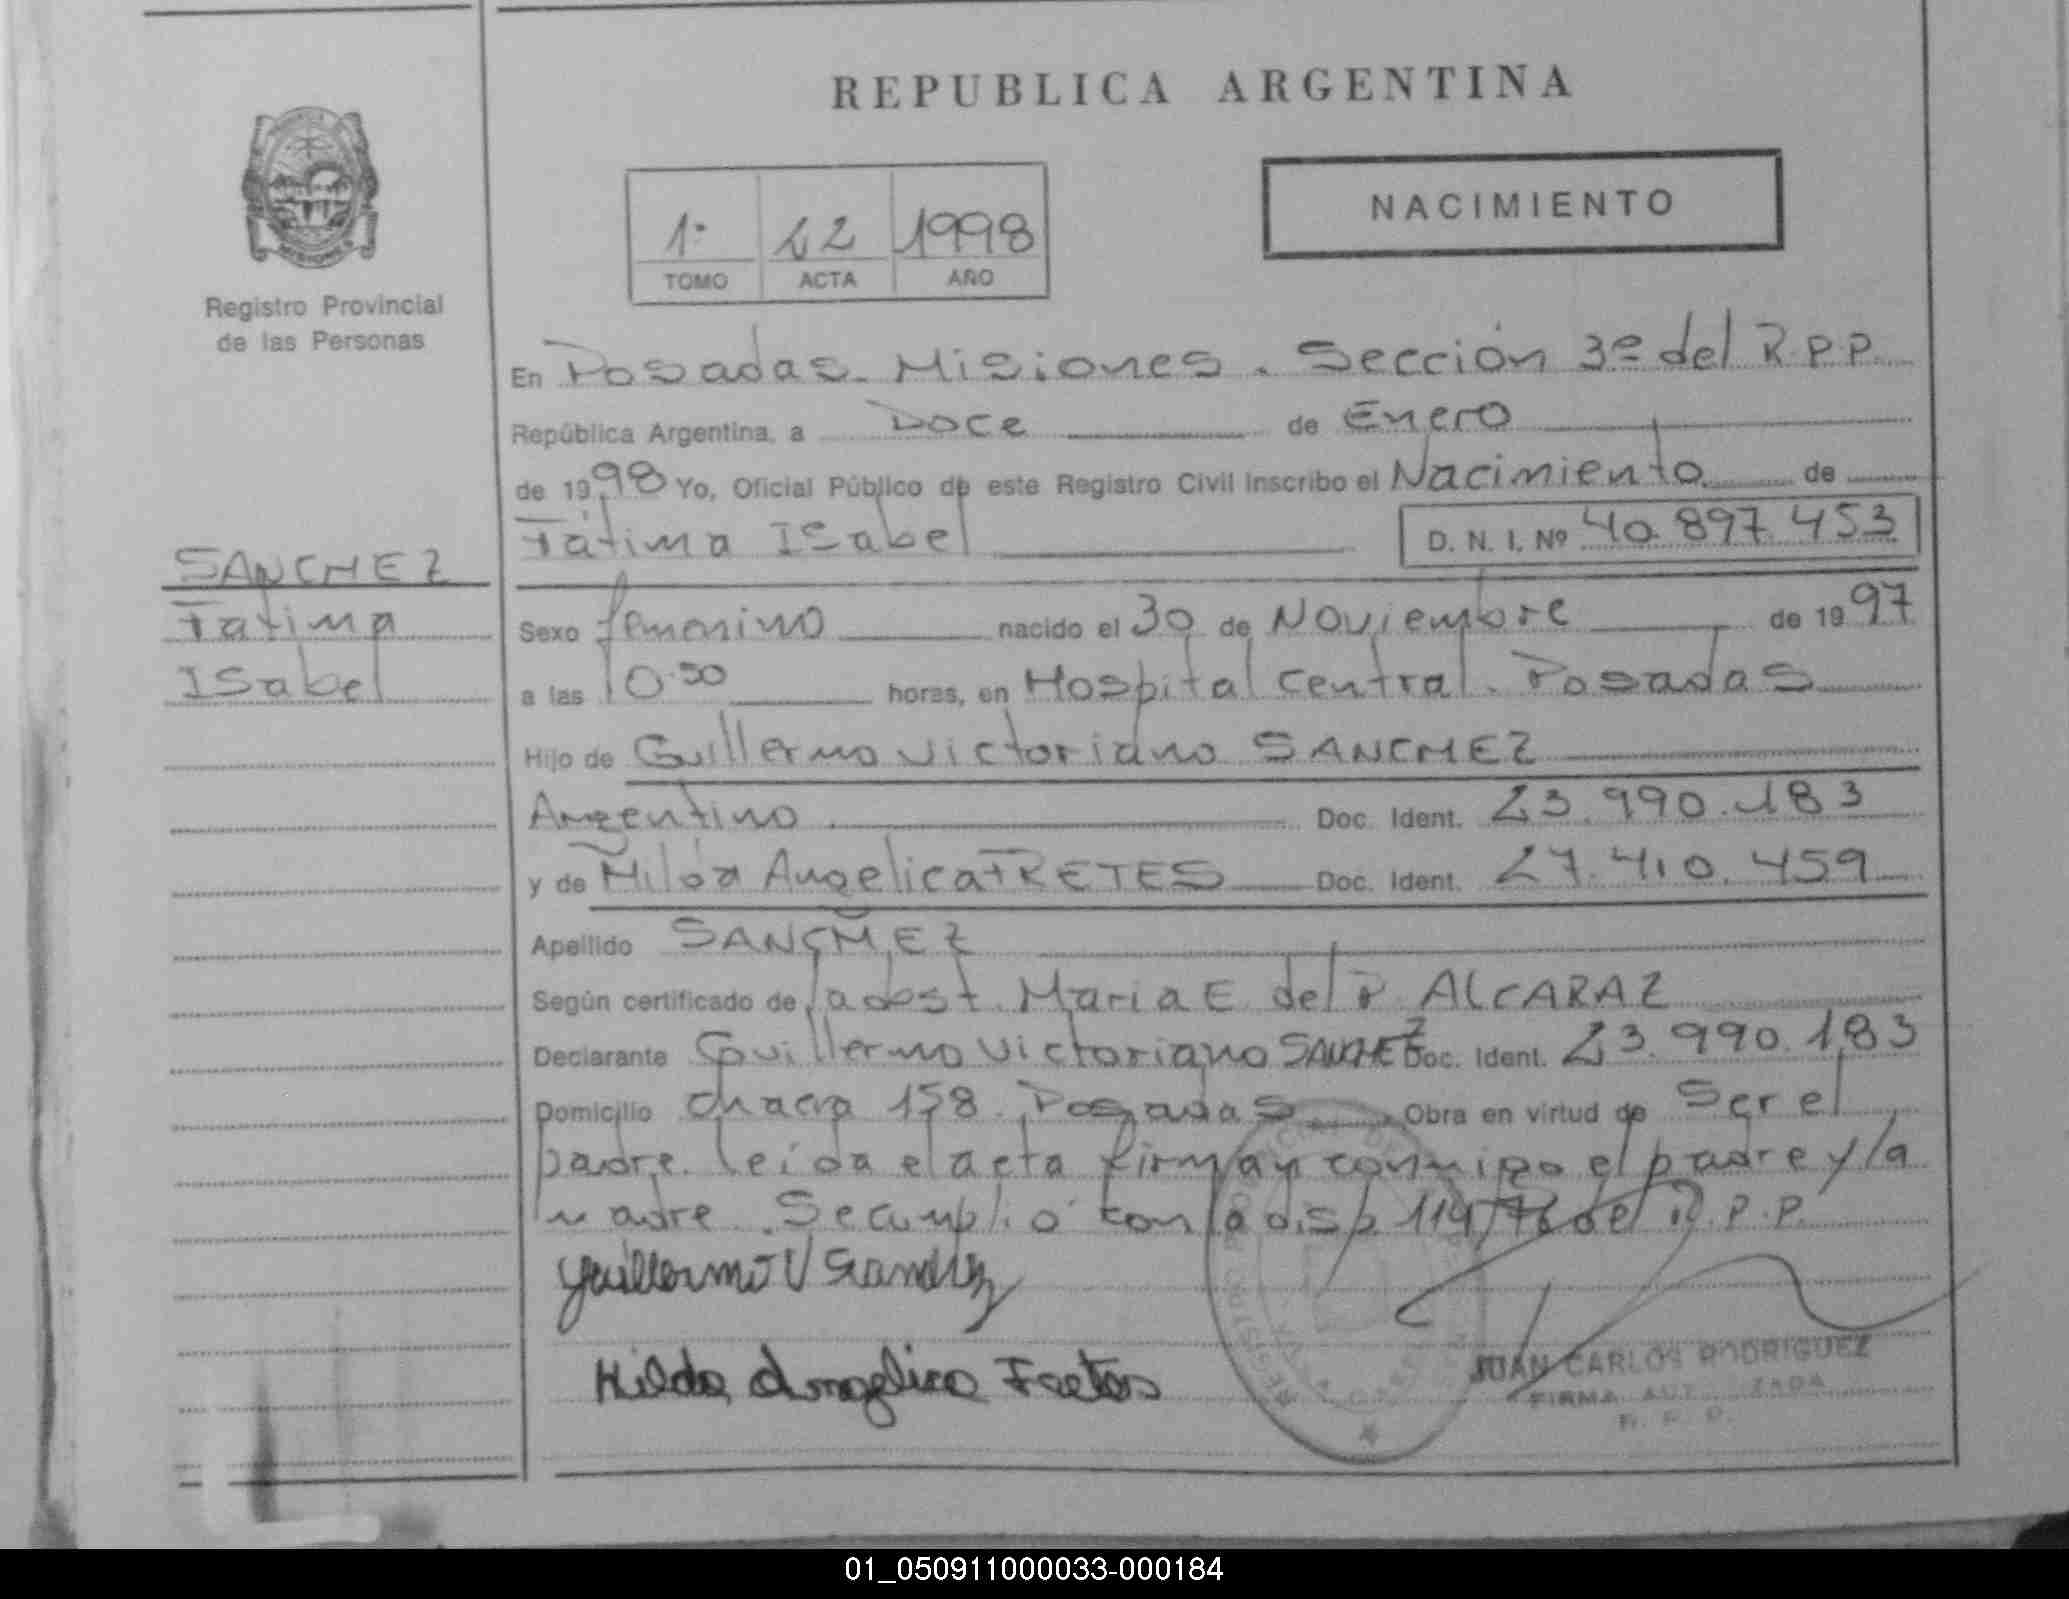 REPUBLICA ARGENTINA
NACIMIENTO
1º 12 1998
TOMO ACTA AÑO
Registro Provincial
de las Personas
En Posadas. Misiones. Sección 3º del R.P.P.
República Argentina, a Doce de Enero
de 1998 Yo, Oficial Público de este Registro Civil inscribo el Nacimiento de
Fátima Isabel D. N. I. Nº 40.897.453
SANCHEZ
Fatima
Isabel
Sexo femenino nacido el 30 de Noviembre de 1997
a las 10.50 horas, en Hospital Central. Posadas
Hijo de Guillermo Victoriano SANCHEZ
Argentino Doc. Ident. 23.990.183
y de Hilda Angelica FRETES Doc. Ident. 27.410.459
Apellido SANCHEZ
Según certificado de la obst. Maria E del P. ALCARAZ
Declarante Guillermo Victoriano SANCHEZ Doc. Ident. 23.990.183
Domicilio Chacra 158 Posadas Obra en virtud de Ser el
padre. Leída el acta firman conmigo el padre y la
madre. Se cumplió con la disp. 114/76 del R.P.P.
Guillermo V Sanchez
Hilda Angelica Fretes
JUAN CARLOS RODRIGUEZ
FIRMA AUTORIZADA
R. P. P.
MISIONES
01_050911000033-000184